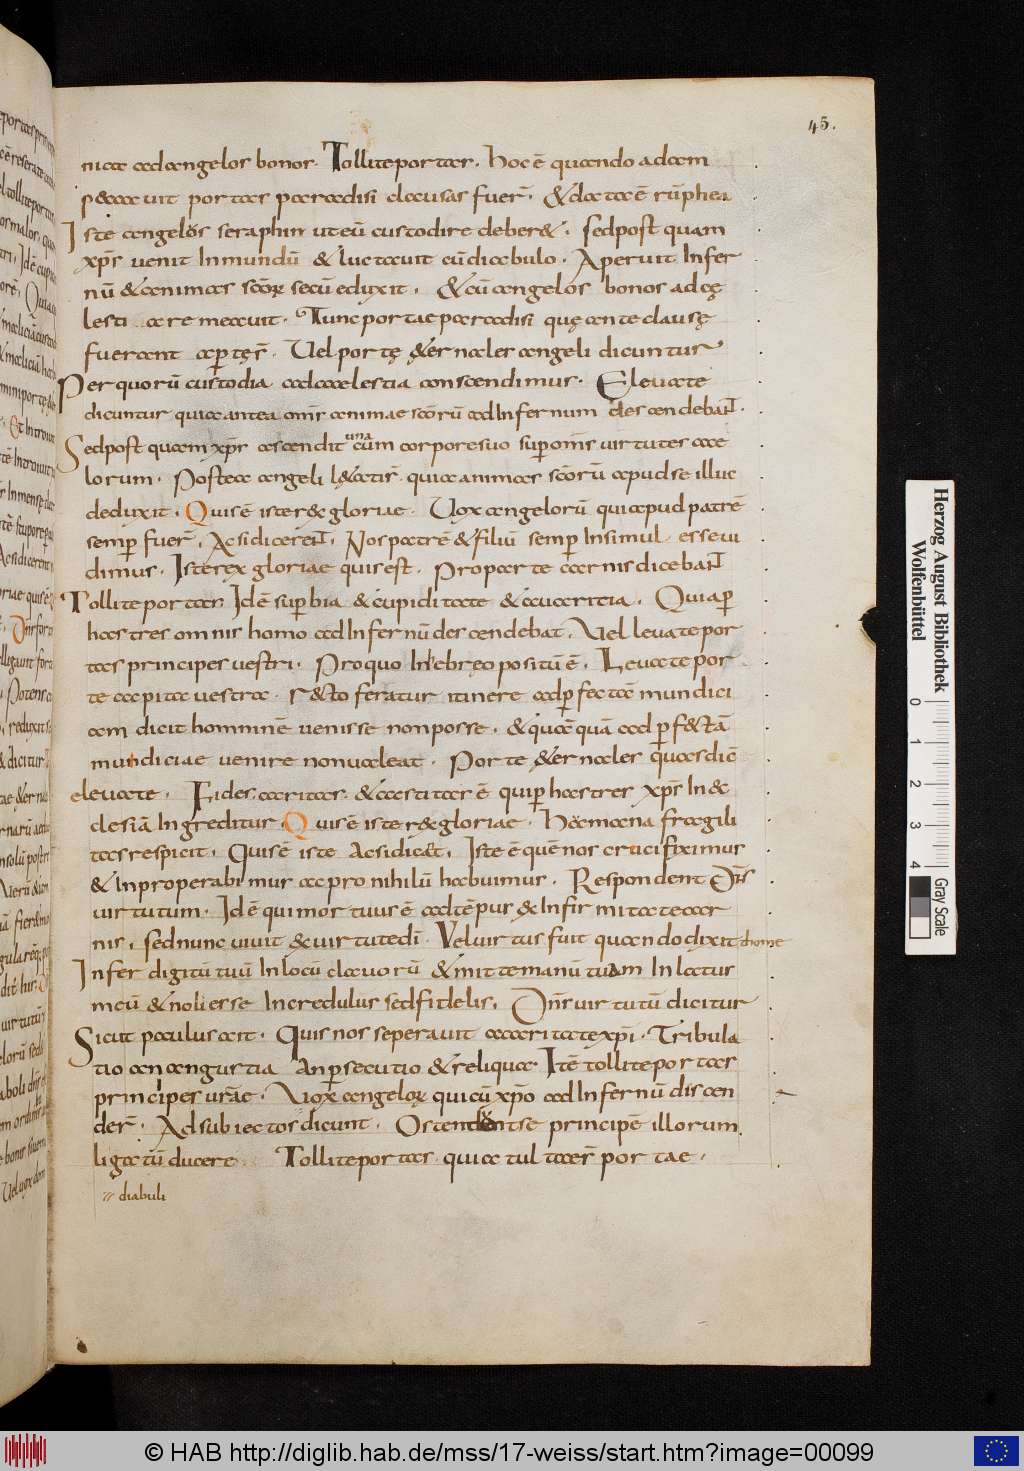 45.
nica ad angelos bonos. Tollite portas. hoc ē quando adam
p&cauit portas paradisi clausas fuer̄. &data ē rūphea
Iste angelos seraphin ut eū custodire deber&. sed post quam
xp̄s uenit In mundū & luctauit cū diabulo. Aperuit Infer
nū & animas sc̄oꝝ secū eduxit. & cū angelos bonos ad cę
lesti are meauit. Tunc portae paradisi quę ante clausę
fuerant apertęs̄. Uel portę &ernales angeli dicuntur
Per quorū custodia ad caelestia conscendimus. Eleuate
dicuntur quia antea om̄s animae sc̄orū ad Infernum descendebant.
Sed post quam xp̄s ascendit una cum corpore suo sup om̄s uirtutes cae
lorum. Postea angeli l&atis̄. quia animas sc̄orū apud se illuc
deduxit. Quis ē iste r& gloriae. Uox angelorū qui apud patrē
semp fuer̄. Ac si dicerent. Nos patrē & filiū semp Insimul esse ui
dimus. Iste rex gloriae quis est. Pro parte carnis dicebant
Tollite portas. Id ē supbia & cupiditate & auaritia. Quia p
has tres omnis homo ad Infernū descendebat. Uel leuate por
tas principes uestri. Pro quo In ebreo positū ē. Leuate por
te capita uestra. r&to feratur itinere ad pfectā mundici
am dicit hominē uenisse non posse. & quāquā ad pf&tā
mundiciae uenire non ualeat. Porte &ernales quas diē
eleuate. Fides caritas & castitas ē qui p has tres xp̄s In &c
clesiā Ingreditur. Quis ē iste r& gloriae. Haec mœna fragili
tas respicit. Quis ē iste Ac si dicat. Iste ē quē nos crucifiximus
& Inproperabimur ac pro nihilū habuimus. Respondent Dn̄s
uirtutum. Id ē qui mortuus ē ad tēpus & Infirmitate car
nis, sed nunc uiuit & uirtute dī. Vel uirtus fuit quando dixit thome
Infer digitū tuū In locū clauorū & mitte manū tuam In latus
meū & noli esse Incredulus sed fidelis. Dn̄s uirtutū dicitur
Sicut paulus ait. Quis nos seperauit a caritate xp̄i. Tribula
tio an angustia An psecutio & reliqua. Itē tollite portas
principes ur̄ae. Uox angeloꝝ qui cū xp̄o ad Infernū discen
der̄. Ad subiectos dicunt. Ostendentse principē illorum
ligatū ducere Tollite portas. quia tultaes̄ portae.
diabuli
Herzog August Bibliothek
Wolfenbüttel
0 1 2 3 4
Gray Scale
© HAB http://diglib.hab.de/mss/17-weiss/start.htm?image=00099